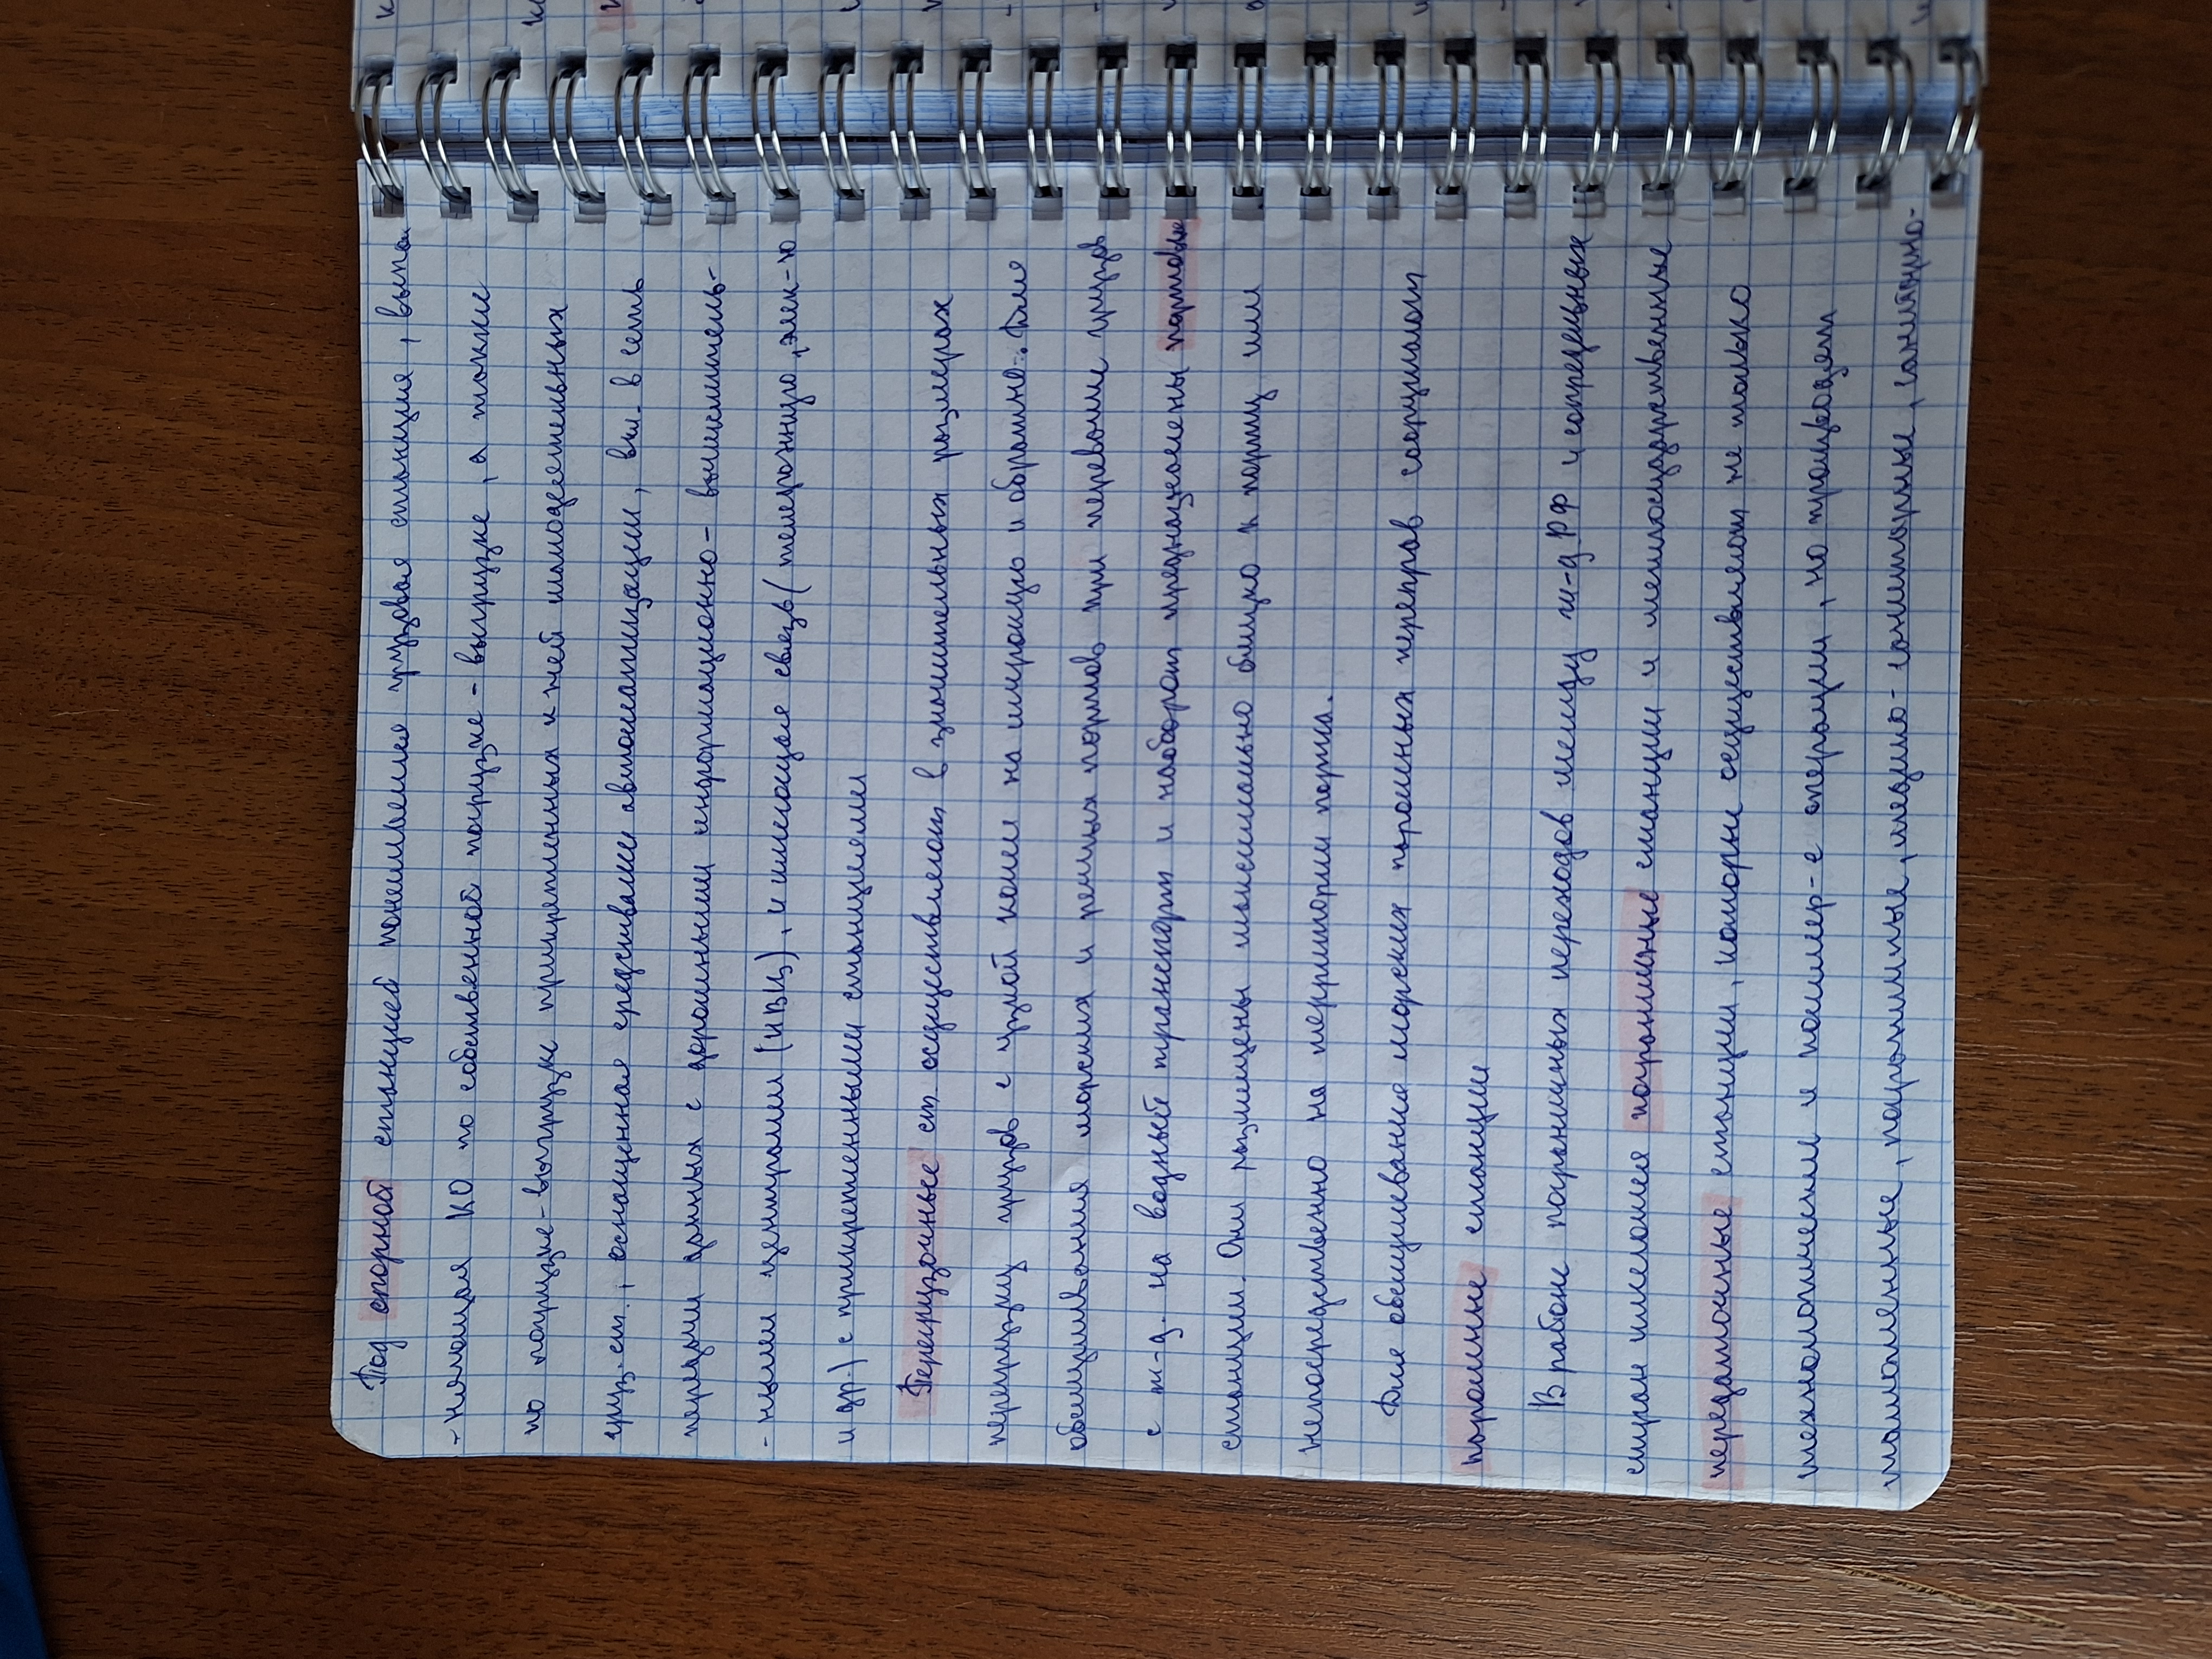 Под опорной станцией понимается грузовая станция, выпол
-няющая КО по собственной погрузке-выгрузке, а также
по погрузке-выгрузке прикрепленных к ней малодеятельных
груз. ст., оснащенная средствами автоматизации, вкл. в сеть
передачи данных с дорожными информационно-вычислитель-
-ными центрами (ИВЦ), и имеющая связь (телефонную, элек-ю
и др.) с прикрепленными станциями
Перегрузочные ст. осуществляют в значительных размерах
перегрузку грузов с узкой колеи на широкую и обратно. Для
обслуживания морских и речных портов при перевалке грузов
с ж-д. на водный транспорт и наоборот предназначены портовые
станции. Они размещены максимально близко к порту или
непосредственно на территории порта.
Для обслуживания морских паромных переправ сооружают
паромные станции
В районе пограничных переходов между ж-д РФ и сопредельных
стран имеются пограничные станции и межгосударственные
передаточные станции, которые осуществляют не только
технологические и коммер-е операции, но проводят
таможенные, пограничные, медико-санитарные, санитарно-